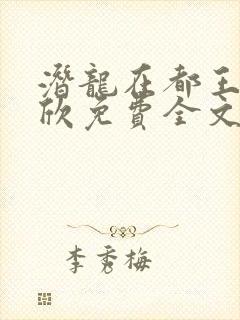 潛龍在都王
欣免費全文
李秀梅